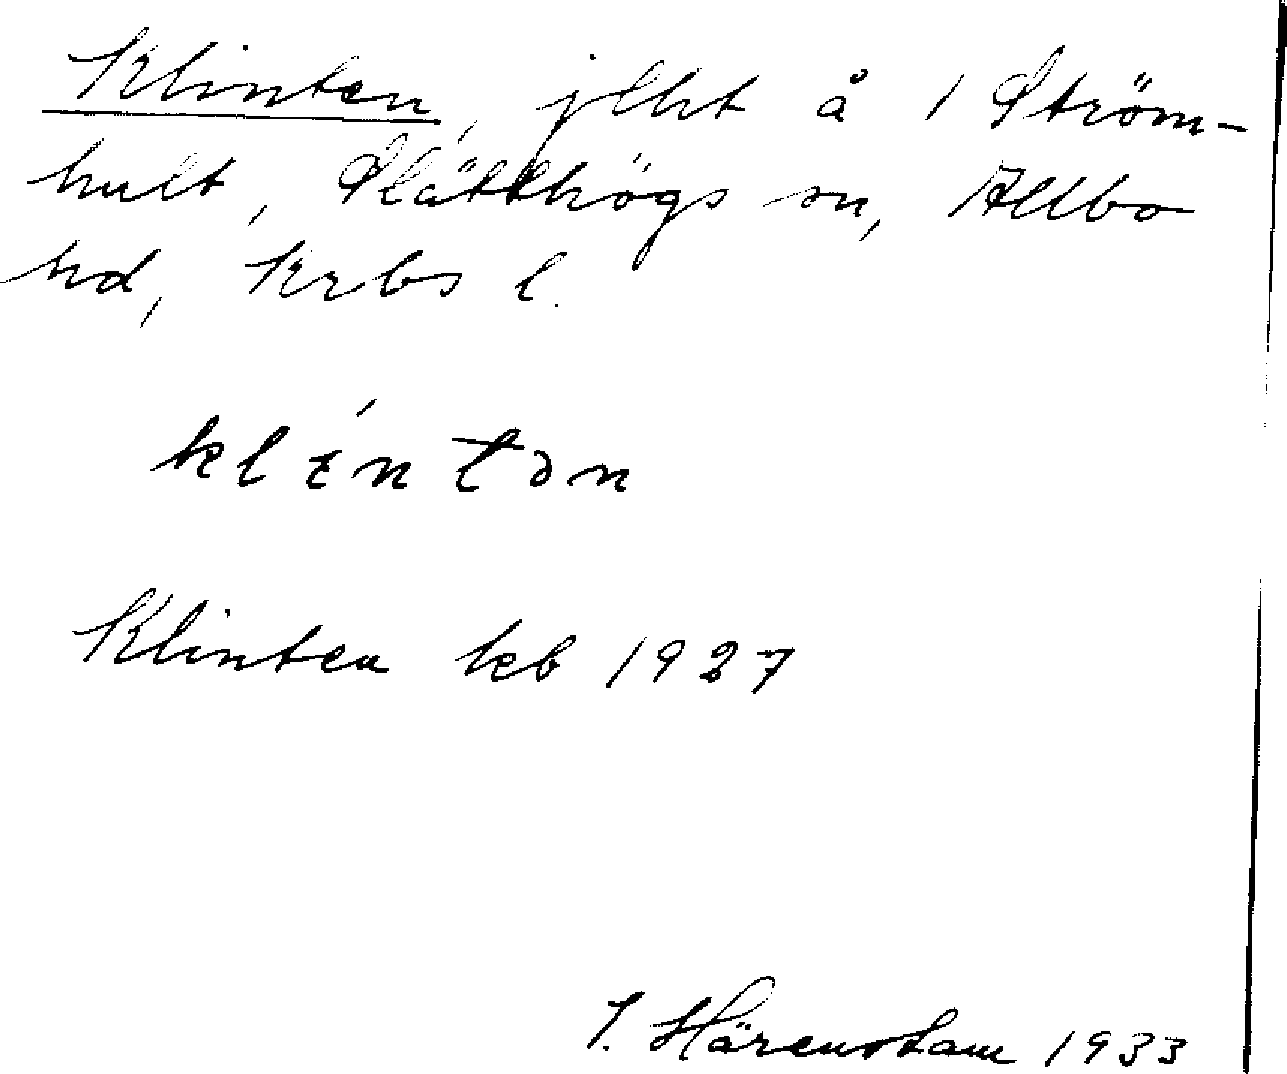 Klinten, jlht å 1 Ström-
hult, Slätthögs sn, Allbo
hd, Krbs l.
klíntən
Klinten kb 1927
I. Härenstam 1933